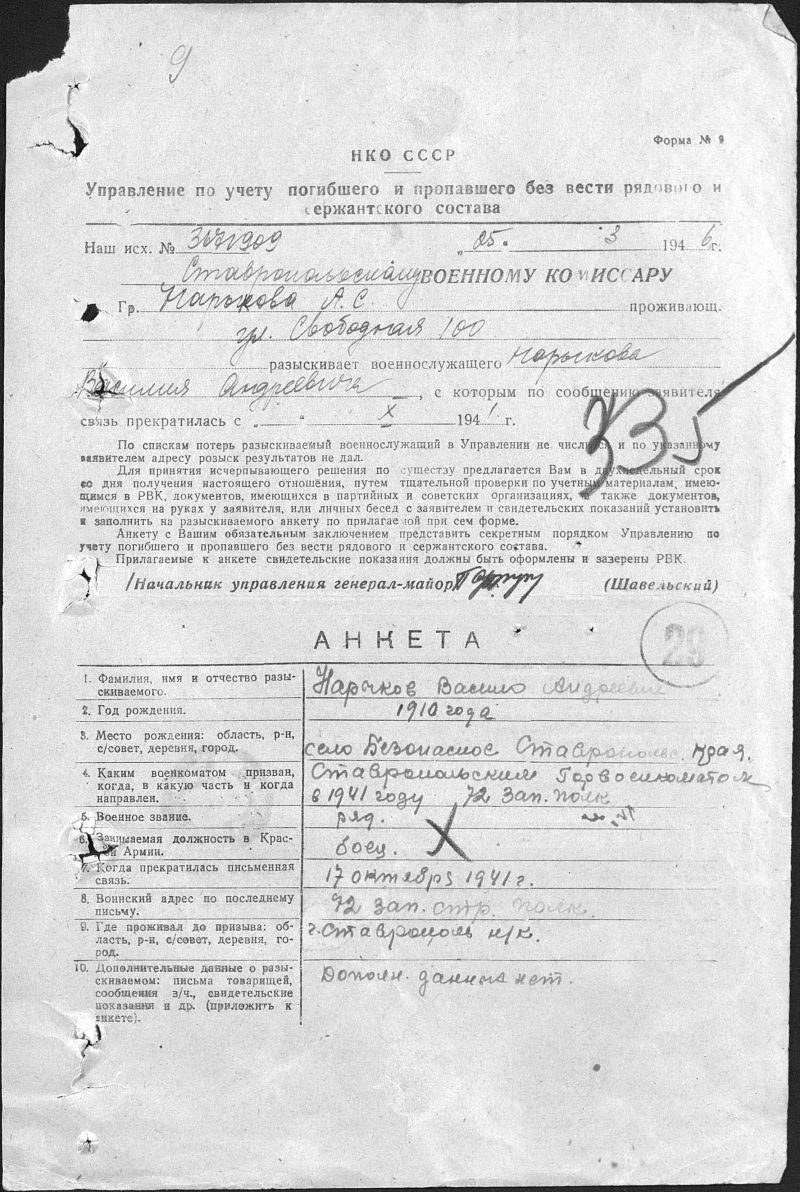 9
Форма № 9
НКО СССР
Управление по учету погибшего и пропавшего без вести рядового и
сержантского состава
Наш исх. № 3671909 „05“ 3 1946 г.
Ставропольскому ВОЕННОМУ КОМИССАРУ
Гр. Нарыкова А. С. проживающ.
ул. Свободная 100
разыскивает военнослужащего Нарыкова
Василия Андреевича, с которым по сообщению заявителя
связь прекратилась с „ “ X 1941 г.
335
По спискам потерь разыскиваемый военнослужащий в Управлении не числится и по указанному
заявителем адресу розыск результатов не дал.
Для принятия исчерпывающего решения по существу предлагается Вам в двухнедельный срок
со дня получения настоящего отношения, путем тщательной проверки по учетным материалам, имею-
щимся в РВК, документов, имеющихся в партийных и советских организациях, а также документов,
имеющихся на руках у заявителя, или личных бесед с заявителем и свидетельских показаний установить
и заполнить на разыскиваемого анкету по прилагаемой при сем форме.
Анкету с Вашим обязательным заключением представить секретным порядком Управлению по
учету погибшего и пропавшего без вести рядового и сержантского состава.
Прилагаемые к анкете свидетельские показания должны быть оформлены и заверены РВК.
Начальник управления генерал-майор (Шавельский)
29
АНКЕТА
1. Фамилия, имя и отчество разы-
скиваемого.
Нарыков Василь Андреевич
2. Год рождения.
1910 года
3. Место рождения: область, р-н,
с/совет, деревня, город.
село Безопасное Ставропольс. края.
4. Каким военкоматом призван,
когда, в какую часть и когда
направлен.
Ставропольским Горвоенкоматом
в 1941 году 72 Зап. полк
5. Военное звание.
ряд.
6. Занимаемая должность в Крас-
ной Армии.
боец.
7. Когда прекратилась письменная
связь.
17 октября 1941 г.
8. Воинский адрес по последнему
письму.
72 зап. стр. полк.
9. Где проживал до призыва: об-
ласть, р-н, с/совет, деревня, го-
род.
г. Ставрополь н/к.
10. Дополнительные данные о разы-
скиваемом: письма товарищей,
сообщения в/ч., свидетельские
показания и др. (приложить к
анкете).
Дополн. данных нет.